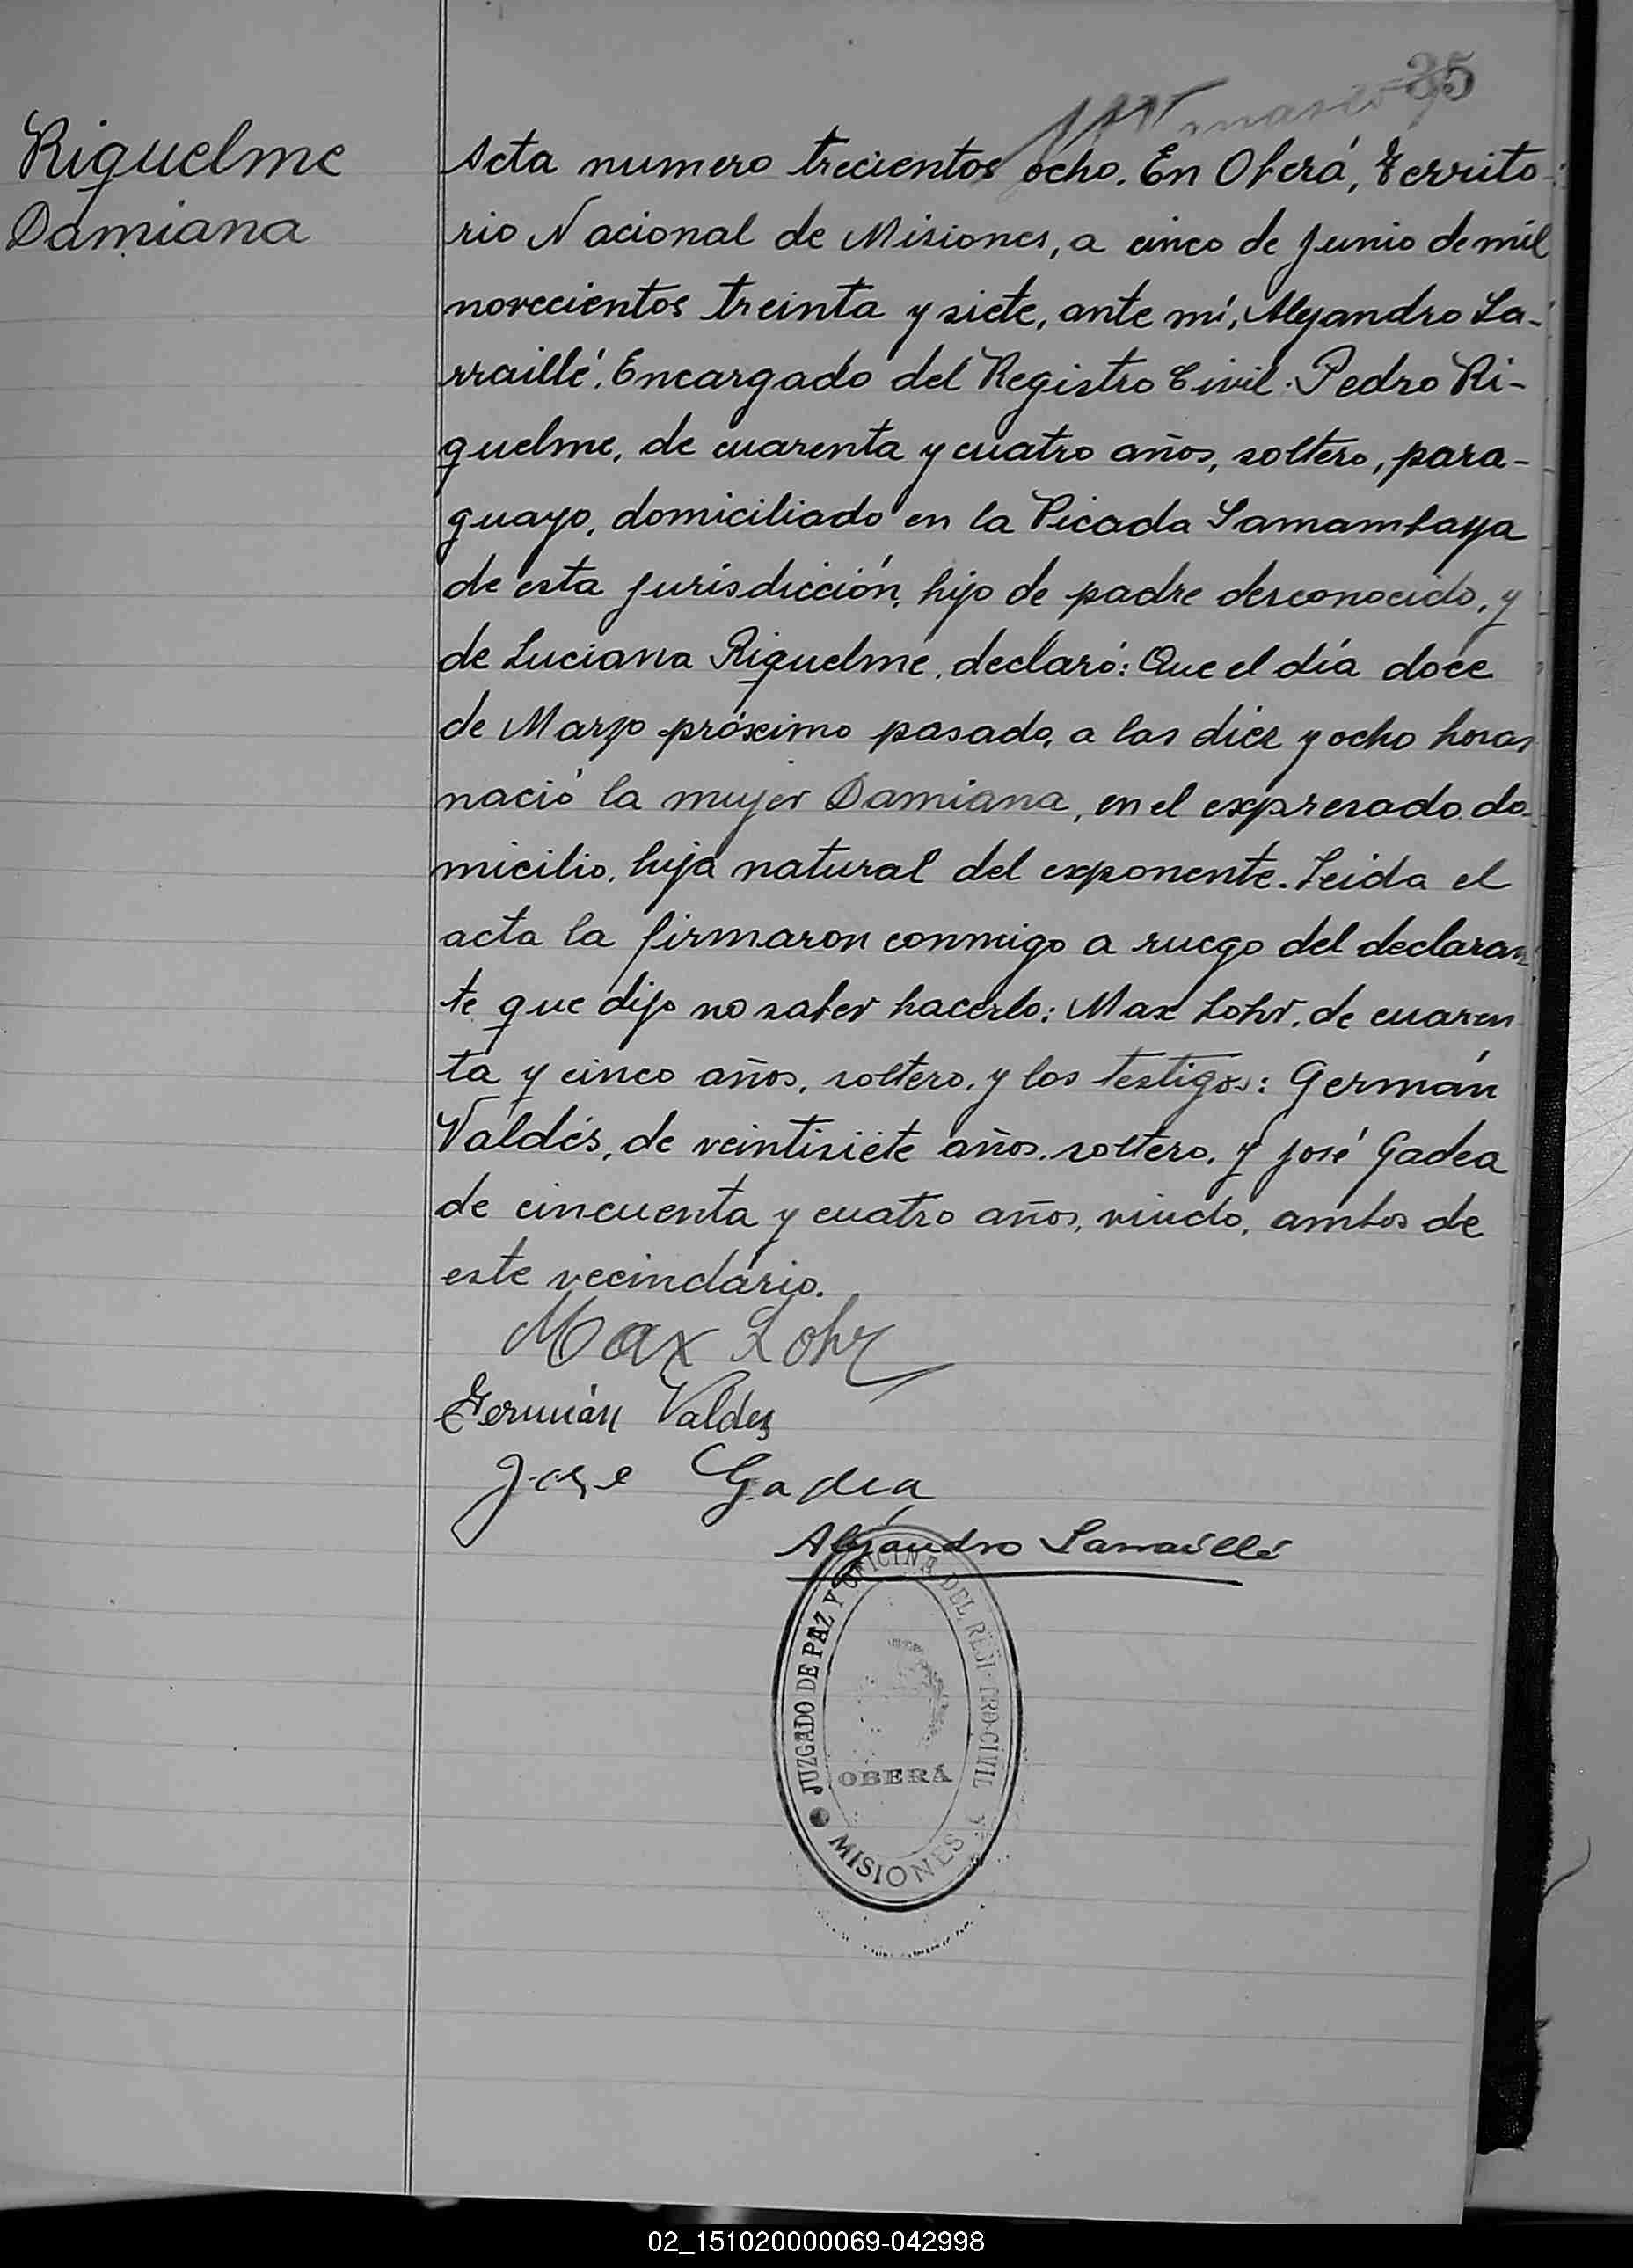 35
Riquelme
Damiana
Acta numero trecientos ocho. En Oberá, Territo-
rio Nacional de Misiones, a cinco de Junio de mil
novecientos treinta y siete, ante mí, Alejandro La-
rraillé, Encargado del Registro Civil. Pedro Ri-
quelme, de cuarenta y cuatro años, soltero, para-
guayo, domiciliado en la Picada Samambaya
de esta jurisdicción, hijo de padre desconocido, y
de Luciana Riquelme, declaró: Que el día doce
de Marzo próximo pasado, a las diez y ocho horas
nació la mujer Damiana, en el expresado do-
micilio, hija natural del exponente. Leida el
acta la firmaron conmigo a ruego del declaran-
te que dijo no saber hacerlo: Max Lohr, de cuaren
ta y cinco años, soltero, y los testigos: Germán
Valdés, de veintisiete años, soltero, y José Gadea
de cincuenta y cuatro años, viudo, ambos de
este vecindario.
Max Lohr
Germán Valdez
Jose Gadea
Alejandro Larraillé
JUZGADO DE PAZ Y OFICINA DEL REGISTRO CIVIL
OBERÁ
MISIONES
02_151020000069-042998